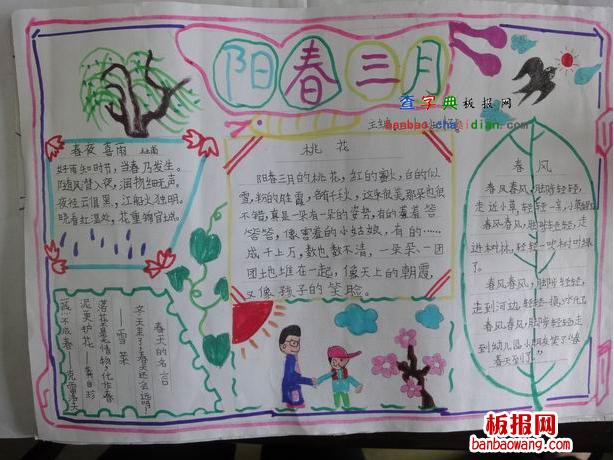 阳春三月
查字典 板报网
banbao.chazidian.com
主编
春夜喜雨 杜甫
好雨知时节，当春乃发生。
随风潜入夜，润物细无声。
野径云俱黑，江船火独明。
晓看红湿处，花重锦官城。
桃花
阳春三月的桃花，红的像火，白的似
雪，粉的胜霞，各有千秋，这朵很美那朵也很
不错，真是一朵有一朵的姿势，有的羞羞答
答答，像害羞的小姑娘，有的……
成千上万，数也数不清，一朵朵、一团
团地堆在一起，像天上的朝霞，
又像孩子的笑脸。
春风
春风春风，脚步轻轻，
走近小草，轻轻一亲，小草
春风春风，脚步轻轻，走
进树林，轻轻一吹树叶绿
了。
春风春风，脚步轻轻，
走到河边，轻轻一摸，冰化了
春风春风，脚步轻轻走
到幼儿园，小朋友笑了
春天到了。”
春天的名言
冬天来了，春天还会远吗？
——雪莱
落花是无情物，化作春
泥更护花——龚自珍
板报网
www.banbaowang.com